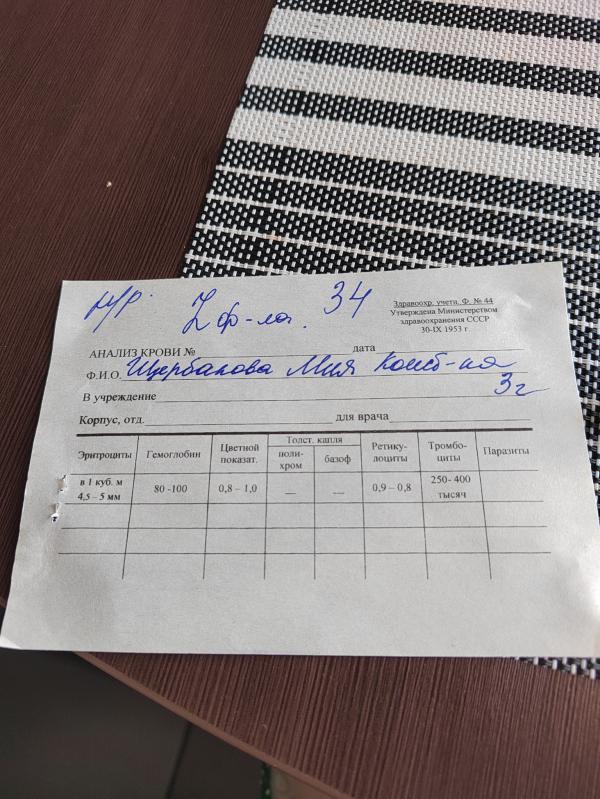 н/р. L ф-ла. 34
Здравоохр. учетн. Ф. № 44
Утверждена Министерством
здравоохранения СССР
30-IX 1953 г.
АНАЛИЗ КРОВИ № дата
Ф.И.О. Щербакова Мия
3г
В учреждение
Корпус, отд. для врача
Эритроциты Гемоглобин Цветной показат. Толст. капля поли-хром базоф Ретику-лоциты Тромбо-циты Паразиты
в 1 куб. м 4,5 – 5 мм 80 -100 0,8 – 1,0 — — 0,9 – 0,8 250- 400 тысяч